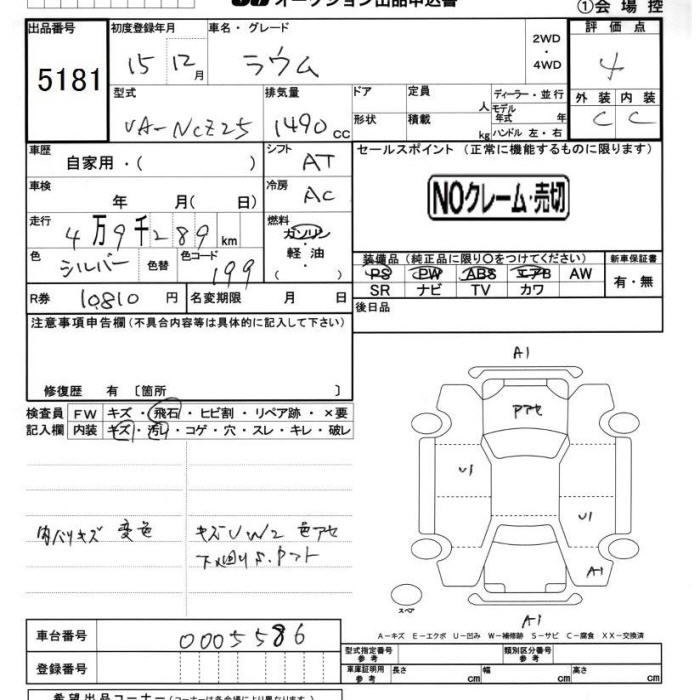 オークション出品申込書
①会場控
出品番号 初度登録年月 車名・グレード 2WD・4WD 評価点
5181 15 12月 ラウム 4
型式 排気量 ドア 定員 人 ディーラー・並行 外装 内装
UA-NCZ25 1490cc 形状 積載 kg モデル年式 年 ハンドル 左・右 C C
車歴 自家用・( ) シフト AT セールスポイント (正常に機能するものに限ります)
車検 年 月( 日) 冷房 AC NOクレーム・売切
走行 4万9千289km 燃料 ガソリン
色 シルバー 色替 色コード 199 軽油 ( )
装備品 (純正品に限り○をつけてください) 新車保証書
PS PW ABS エアB AW 有・無
SR ナビ TV カワ
R券 10,810円 名変期限 月 日 後日品
注意事項申告欄 (不具合内容等は具体的に記入して下さい)
修復歴 有 〔箇所 〕
検査員 FW キズ・飛石・ヒビ割・リペア跡・×要
記入欄 内装 キズ・汚レ・コゲ・穴・スレ・キレ・破レ
A1
Pアセ
U1
U1
A1
内ハリキズ 変色 キズUW2 色アセ
下廻りS.Pマト
スペア
A1
A-キズ E-エクボ U-凹み W-補修跡 S-サビ C-腐食 XX-交換済
車台番号 0005586
登録番号
型式指定番号 参考 類別区分番号 参考
車庫証明用 参考 長さ cm 幅 cm 高さ cm
希望出品コーナー (コーナーは各会場により異なります)